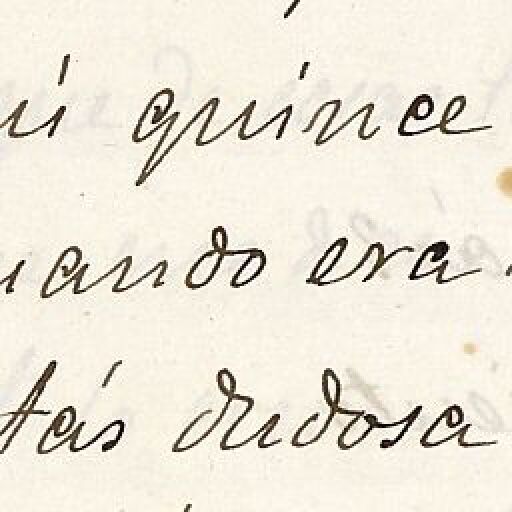 quince
uando era
tás dudosa